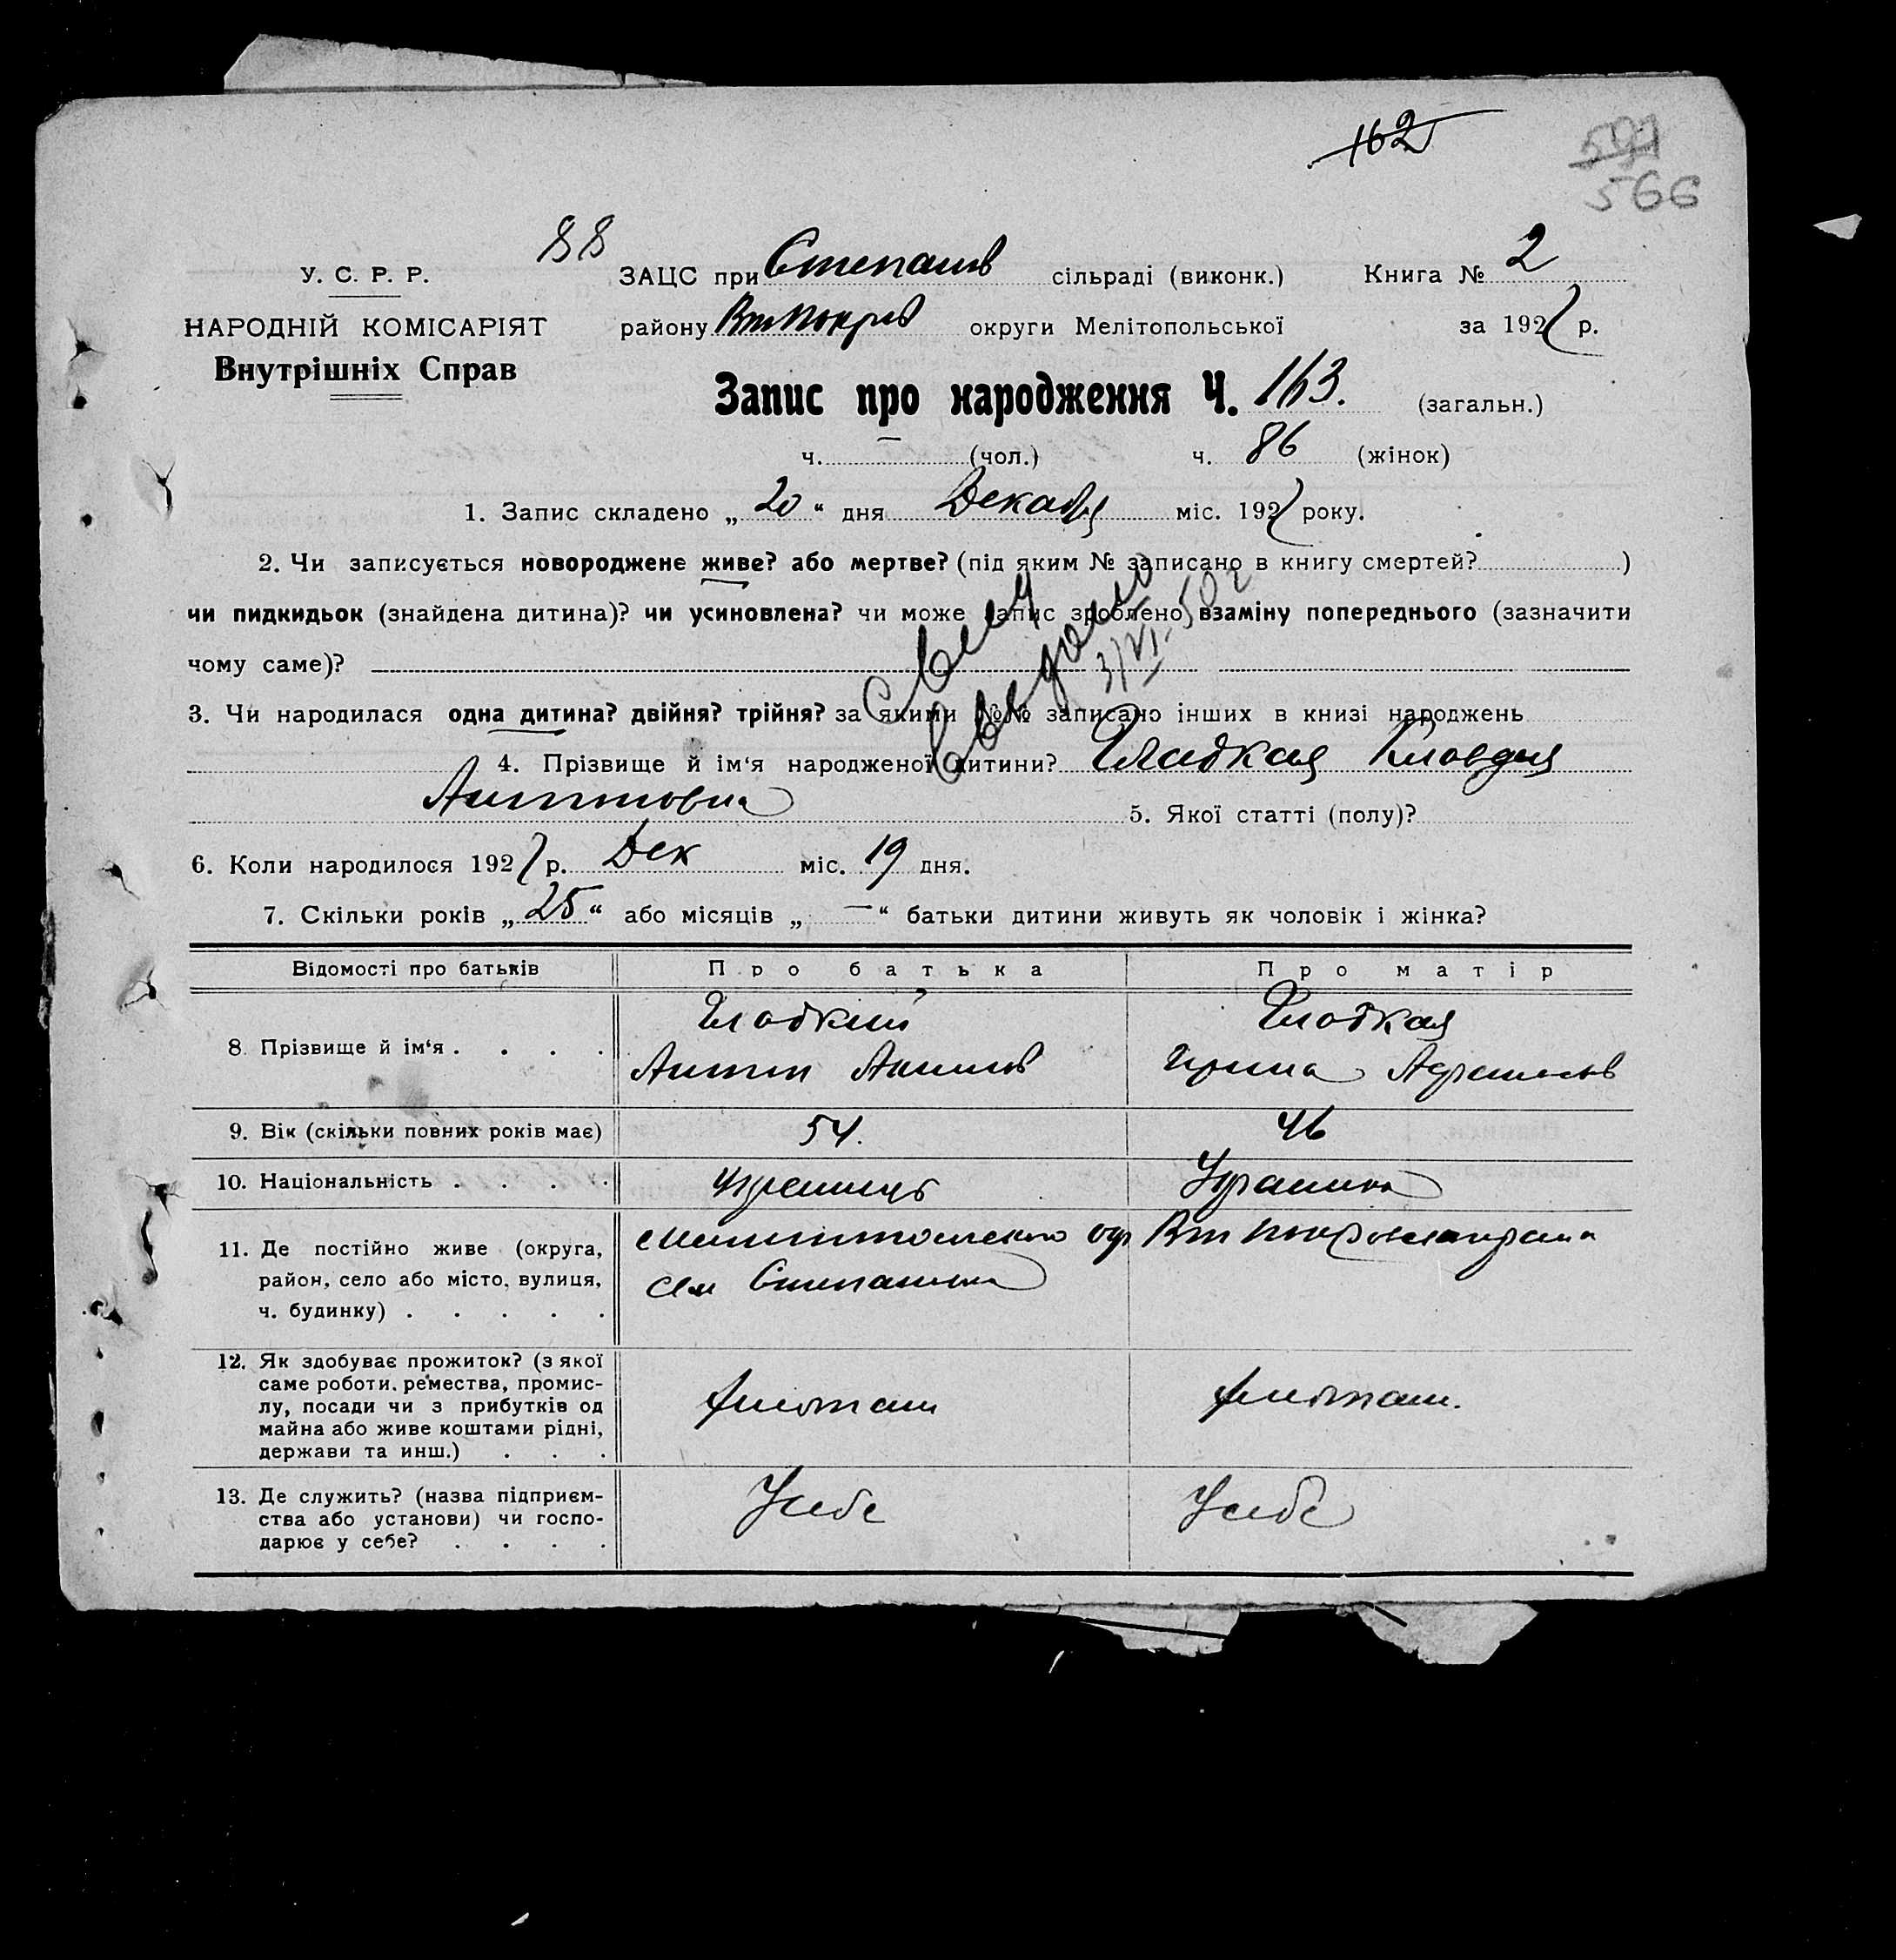 162
591
566
88
У. С. Р. Р.
ЗАЦС при Степанів сільраді (виконк.) Книга № 2
НАРОДНІЙ КОМІСАРІЯТ
району Вт Покрив округи Мелітопольської за 1927 р.
Внутрішніх Справ
Запис про народження Ч. 163. (загальн.)
ч. — (чол.) ч. 86 (жінок)
1. Запис складено „20“ дня Декабря міс. 1927 року.
2. Чи записується новороджене живе? або мертве? (під яким № записано в книгу смертей? )
чи пидкидьок (знайдена дитина)? чи усиновлена? чи може запис зроблено взаміну попереднього (зазначити
чому саме)?
3. Чи народилася одна дитина? двійня? трійня? за якими №№ записано інших в книзі народжень
4. Прізвище й ім‘я народженої дитини? Гладкая Кловдия
Антоновна 5. Якої статті (полу)?
6. Коли народилося 1927 р. Дек міс. 19 дня.
7. Скільки років „25“ або місяців „—“ батьки дитини живуть як чоловік і жінка?
Відомості про батьків Про батька Про матір
8. Прізвище й ім‘я . . . . Гладкий Гладкая
Антон Ирина
9. Вік (скільки повних років має) 54. 46
10. Національність . . . . Украинец Украинка
11. Де постійно живе (округа,
район, село або місто, вулиця,
ч. будинку) . . . . .
Мелитопольского окр Вт Покровского района
сел Степановка
12. Як здобуває прожиток? (з якої
саме роботи, ремества, промис-
лу, посади чи з прибутків од
майна або живе коштами рідні,
держави та инш.) . . .
хлебопаш хлебопаш.
13. Де служить? (назва підприєм-
ства або установи) чи госпо-
дарює у себе? . . . .
У себе У себе